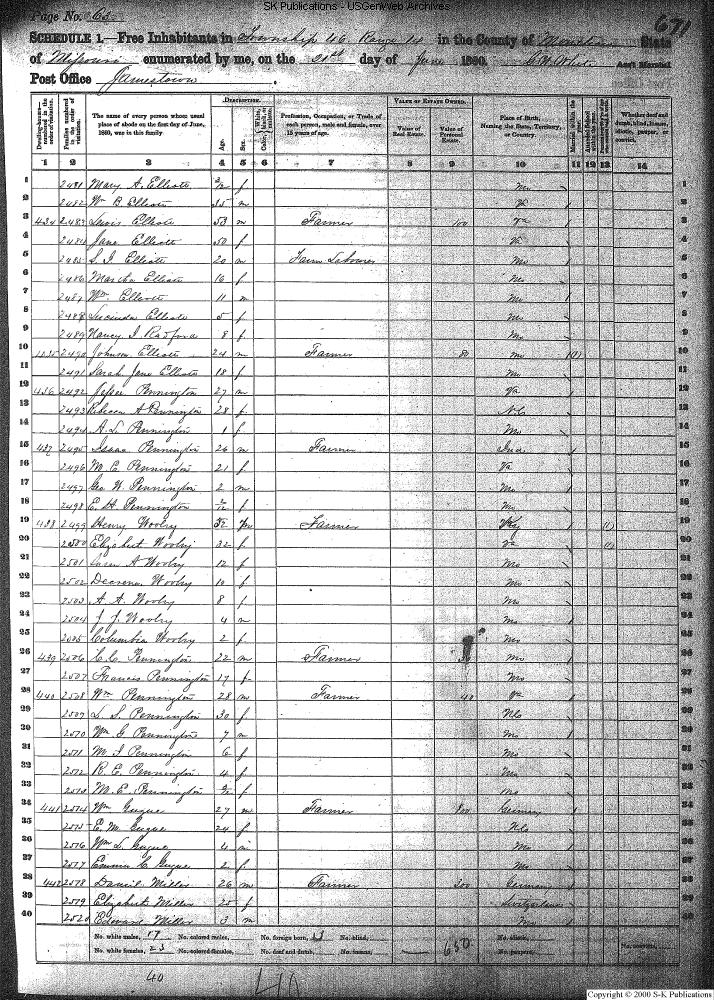 SK Publications - USGenWeb Archives
Page No. 63
671
SCHEDULE 1.—Free Inhabitants in Township 46 Range 14 in the County of Moniteau State
of Missouri enumerated by me, on the 21st day of June 1860. Ass't Marshal
Post Office Jamestown
Dwelling-houses—numbered in the order of visitation.
Families numbered in the order of visitation.
The name of every person whose usual place of abode on the first day of June, 1860, was in this family.
DESCRIPTION.
Age.
Sex.
Color, White, black, or mulatto.
Profession, Occupation, or Trade of each person, male and female, over 15 years of age.
VALUE OF ESTATE OWNED.
Value of Real Estate.
Value of Personal Estate.
Place of Birth, Naming the State, Territory, or Country.
Whether deaf and dumb, blind, insane, idiotic, pauper, or convict.
1 2 3 4 5 6 7 8 9 10 11 12 13 14
1 2481 Mary A. Elliott f Mo 1
2 2482 Wm B Elliott 35 m 2
3 434 2483 Lewis Elliott 53 m Farmer 100 Va 3
4 2484 Jane Elliott 50 f Va 4
5 2485 S. J. Elliott 20 m Farm Laborer Mo 5
6 2486 Martha Elliott 16 f Mo 6
7 2487 Wm Elliott 11 m Mo 7
8 2488 Lucinda Elliott 5 f Mo 8
9 2489 Nancy J. Radford 8 f Mo 9
10 2490 Johnson Elliott 24 m Farmer 80 Mo 10
11 2491 Sarah Jane Elliott 18 f Mo 11
12 436 2492 Jesse Pennington 27 m Va 12
13 2493 Rebecca A Pennington 28 f N.C. 13
14 2494 A. L. Pennington 1 f Mo 14
15 437 2495 Isaac Pennington 26 m Farmer Ind. 15
16 2496 M. C. Pennington 21 f Va 16
17 2497 Geo W. Pennington 2 m Mo 17
18 2498 E. H. Pennington 2/12 f Mo 18
19 438 2499 Henry Woolry m Farmer Ky 19
20 2500 Elizabeth Woolry 32 f Va 20
21 2501 A Woolry 12 f Mo 21
22 2502 Woolry 10 f Mo 22
23 2503 A. A. Woolry 8 f Mo 23
24 2504 J. J. Woolry 4 m Mo 24
25 2505 Columbia Woolry 2 f Mo 25
26 439 2506 C. C. Pennington 22 m Farmer Mo 26
27 2507 Francis Pennington 17 f Mo 27
28 440 2508 Wm Pennington 28 m Farmer 40 Va 28
29 2509 L. S. Pennington 30 f N.C. 29
30 2510 Wm G Pennington 7 m Mo 30
31 2511 M. J. Pennington 6 f Mo 31
32 2512 R. E. Pennington 4 f Mo 32
33 2513 M. E. Pennington f Mo 33
34 441 2514 Wm Gugue 27 m Farmer 800 Germany 34
35 2515 E. M. Gugue 24 f 35
36 2516 Wm L. Gugue 4 m Mo 36
37 2517 Emma C. Gugue 2 f Mo 37
38 442 2518 Daniel Miller 26 m Farmer 200 German 38
39 2519 Elizabeth Miller 25 f Switzerland 39
40 2520 Edward Miller 3 m Mo 40
No. white males, 17 No. colored males, No. foreign born, No. blind, 650 No. idiotic,
No. white females, 23 No. colored females, No. deaf and dumb, No. insane, No. paupers, No. convicts,
40
40
Copyright © 2000 S-K Publications